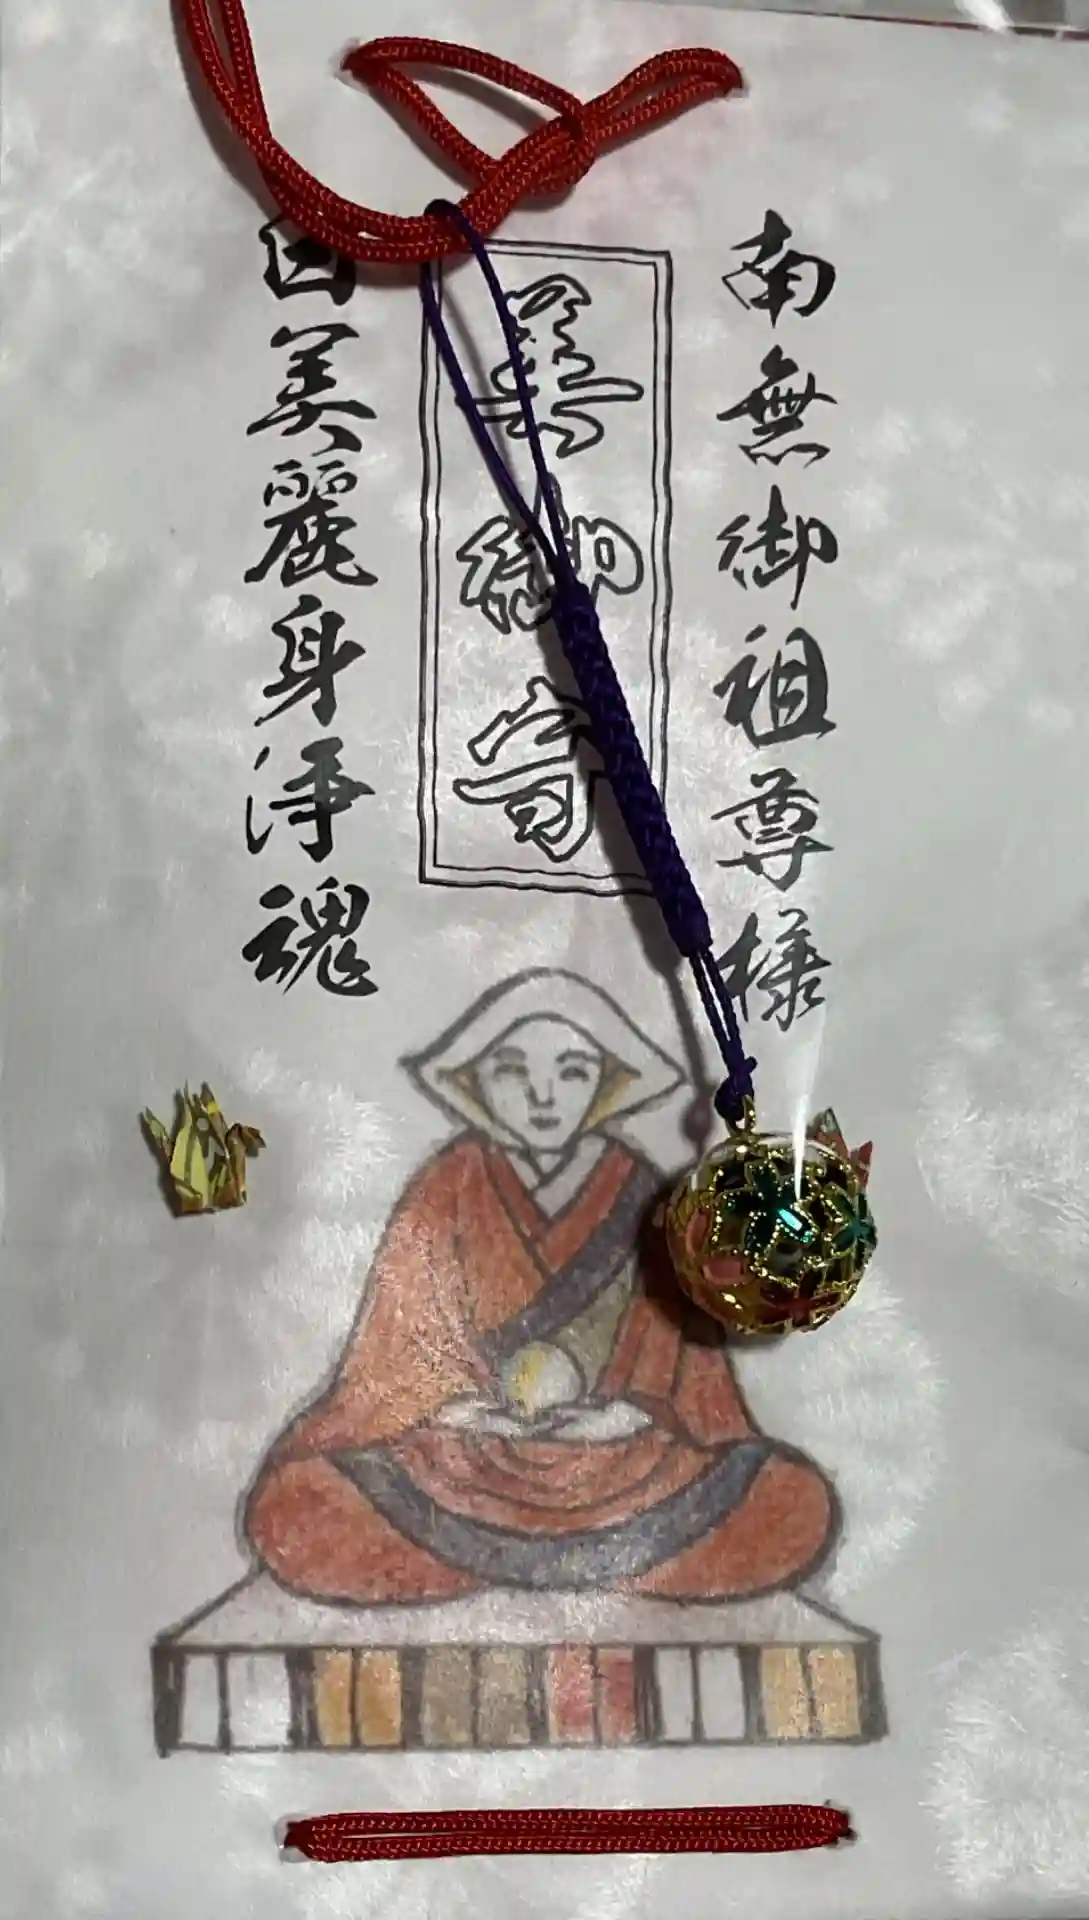 南無御祖尊様
御守
美麗身浄魂